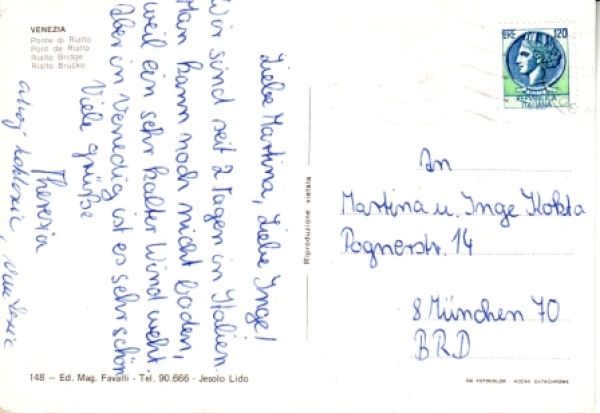 VENEZIA
Ponte di Rialto
Pont de Rialto
Rialto Bridge
Rialto Brücke
Liebe Martina, Liebe Inge!
Wir sind seit 2 Tagen in Italien.
Man kann noch nicht baden,
weil ein sehr kalter Wind weht.
Aber in Venedig ist es sehr schön
Viele Grüße
Theresia
148 — Ed. Mag. Favalli - Tel. 90.666 - Jesolo Lido
Riproduzione vietata
LIRE 120
REPUBBLICA
ITALIANA
An
Martina u. Inge Kokta
Pognerstr. 14
8 München 70
BRD
DA FOTOCOLOR KODAK EKTACHROME